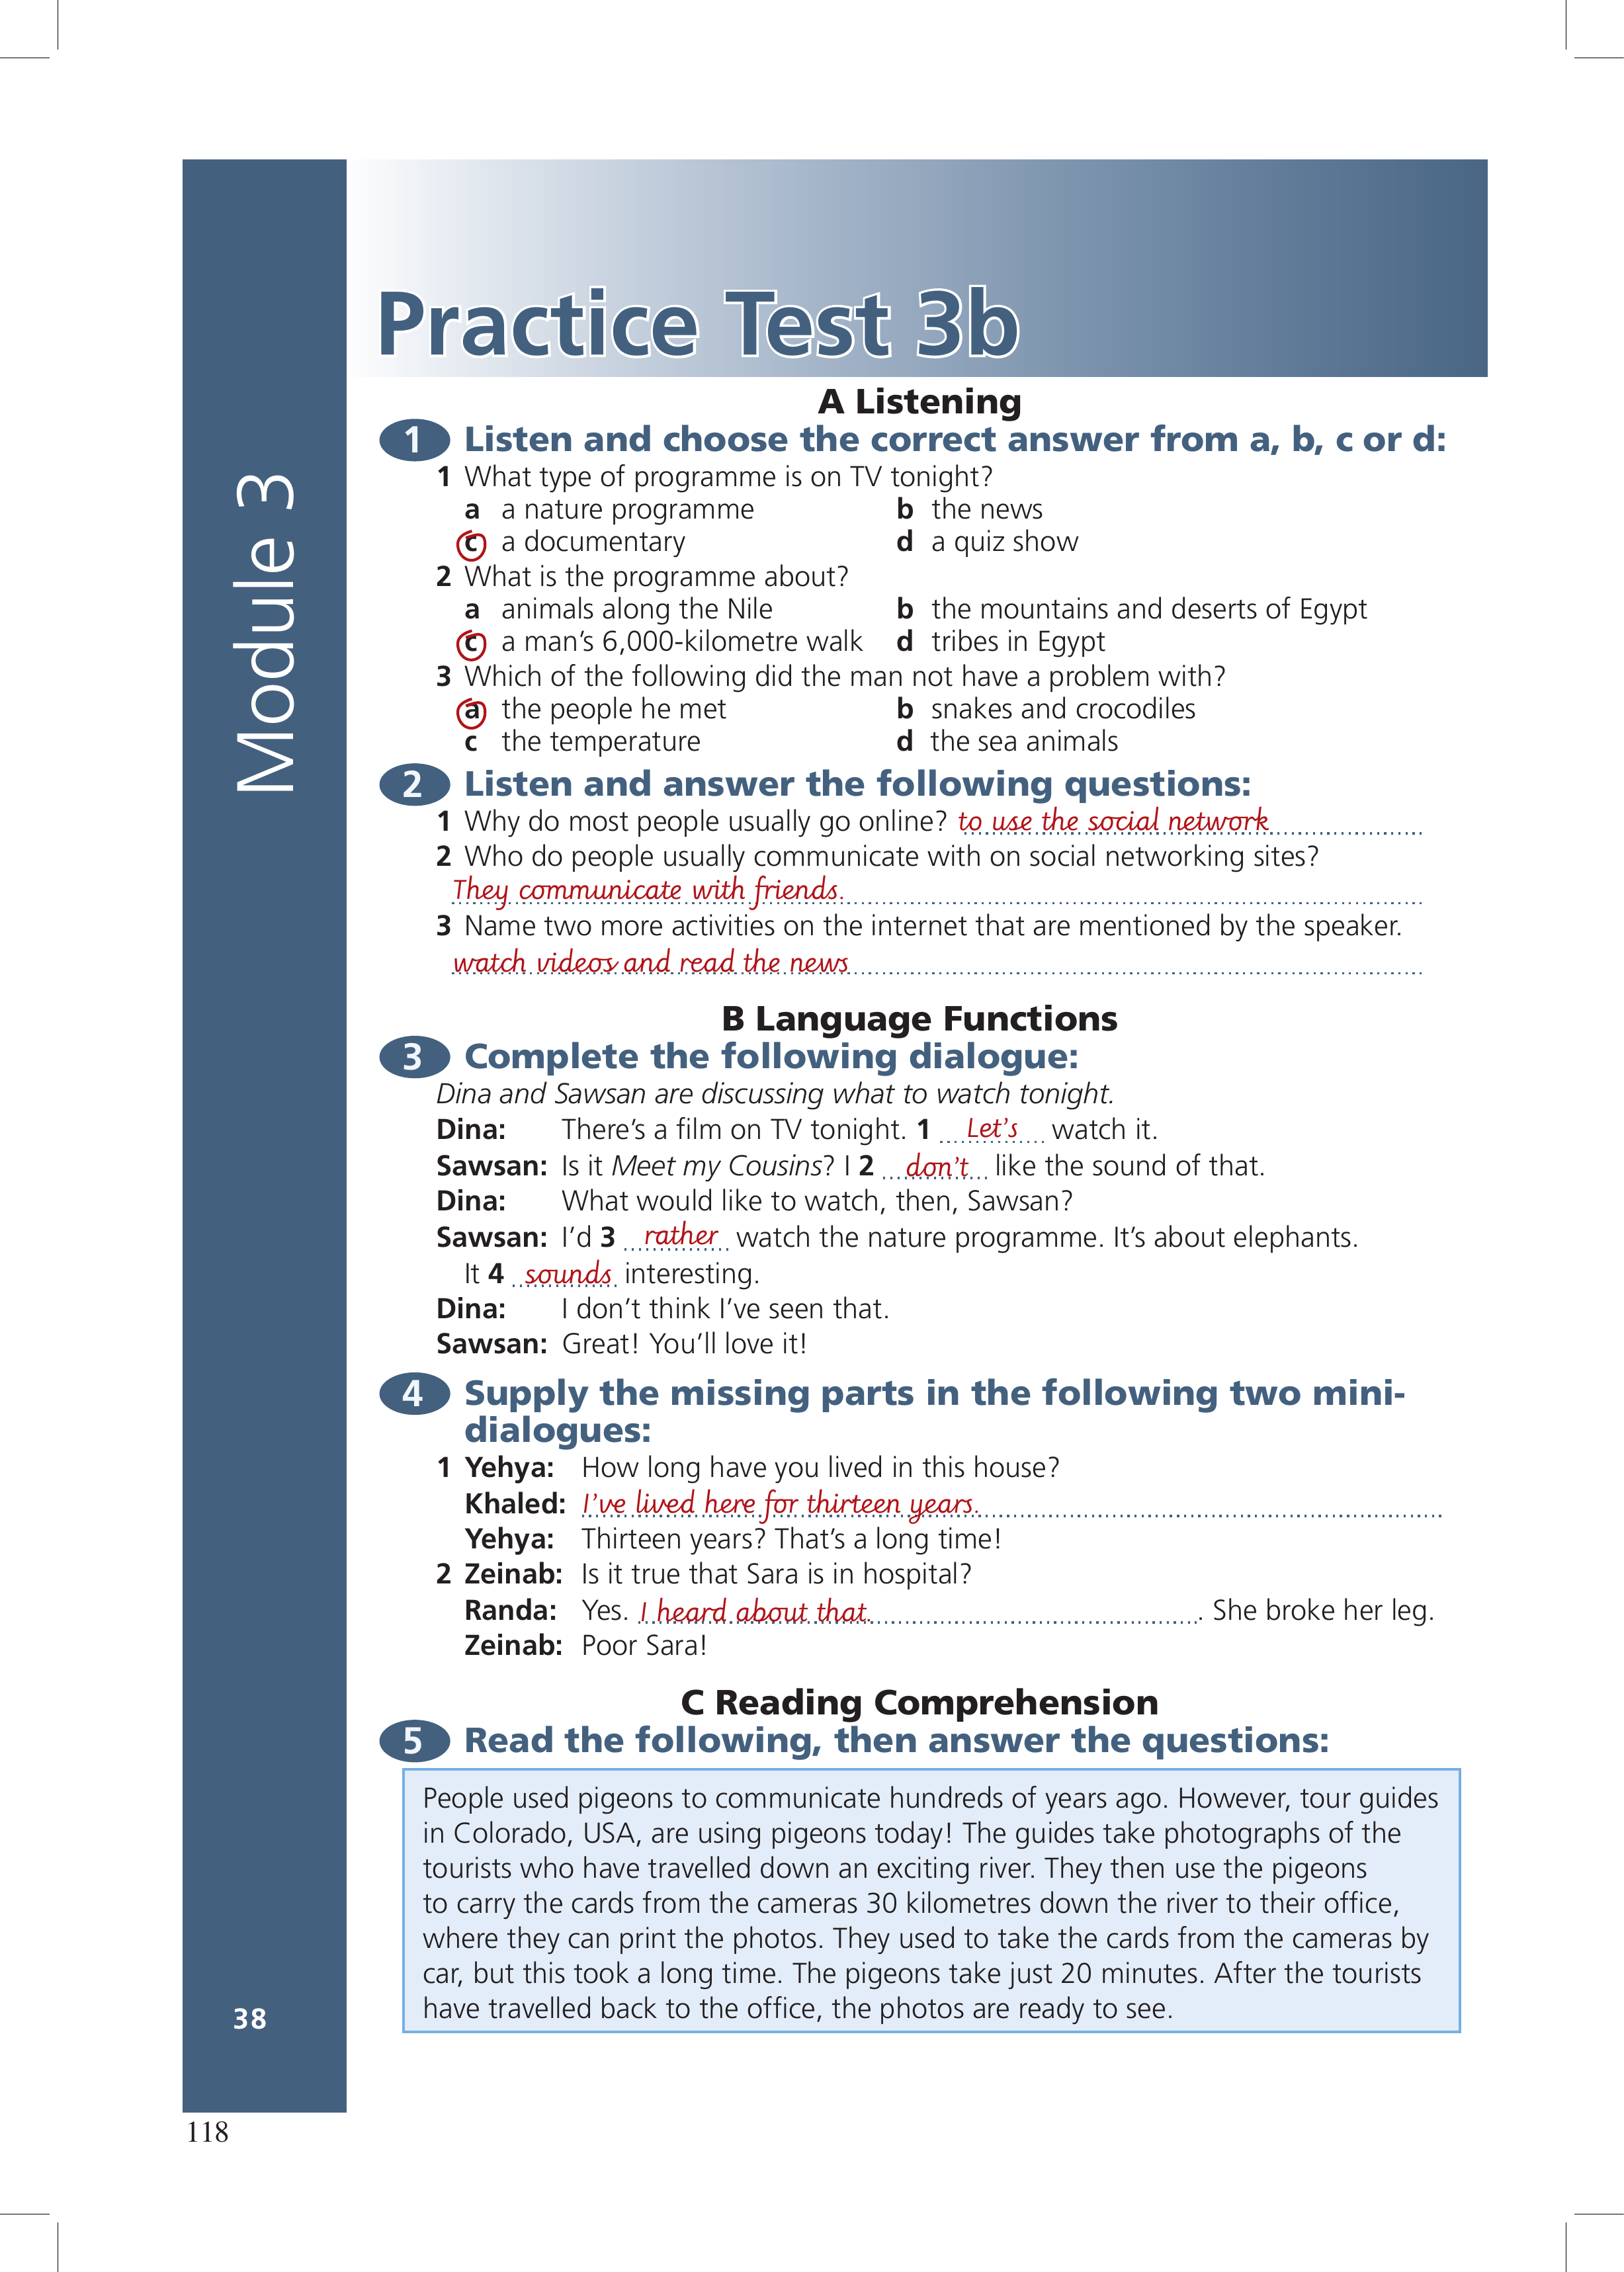 Module 3
Practice Test 3b
A Listening
1 Listen and choose the correct answer from a, b, c or d:
1 What type of programme is on TV tonight?
a a nature programme b the news
c a documentary d a quiz show
2 What is the programme about?
a animals along the Nile b the mountains and deserts of Egypt
c a man's 6,000-kilometre walk d tribes in Egypt
3 Which of the following did the man not have a problem with?
a the people he met b snakes and crocodiles
c the temperature d the sea animals
2 Listen and answer the following questions:
1 Why do most people usually go online? to use the social network
2 Who do people usually communicate with on social networking sites?
They communicate with friends.
3 Name two more activities on the internet that are mentioned by the speaker.
watch videos and read the news
B Language Functions
3 Complete the following dialogue:
Dina and Sawsan are discussing what to watch tonight.
Dina: There's a film on TV tonight. 1 Let's watch it.
Sawsan: Is it Meet my Cousins? I 2 don't like the sound of that.
Dina: What would like to watch, then, Sawsan?
Sawsan: I'd 3 rather watch the nature programme. It's about elephants.
It 4 sounds interesting.
Dina: I don't think I've seen that.
Sawsan: Great! You'll love it!
4 Supply the missing parts in the following two mini-
dialogues:
1 Yehya: How long have you lived in this house?
Khaled: I've lived here for thirteen years.
Yehya: Thirteen years? That's a long time!
2 Zeinab: Is it true that Sara is in hospital?
Randa: Yes. I heard about that. . She broke her leg.
Zeinab: Poor Sara!
C Reading Comprehension
5 Read the following, then answer the questions:
People used pigeons to communicate hundreds of years ago. However, tour guides
in Colorado, USA, are using pigeons today! The guides take photographs of the
tourists who have travelled down an exciting river. They then use the pigeons
to carry the cards from the cameras 30 kilometres down the river to their office,
where they can print the photos. They used to take the cards from the cameras by
car, but this took a long time. The pigeons take just 20 minutes. After the tourists
have travelled back to the office, the photos are ready to see.
38
118